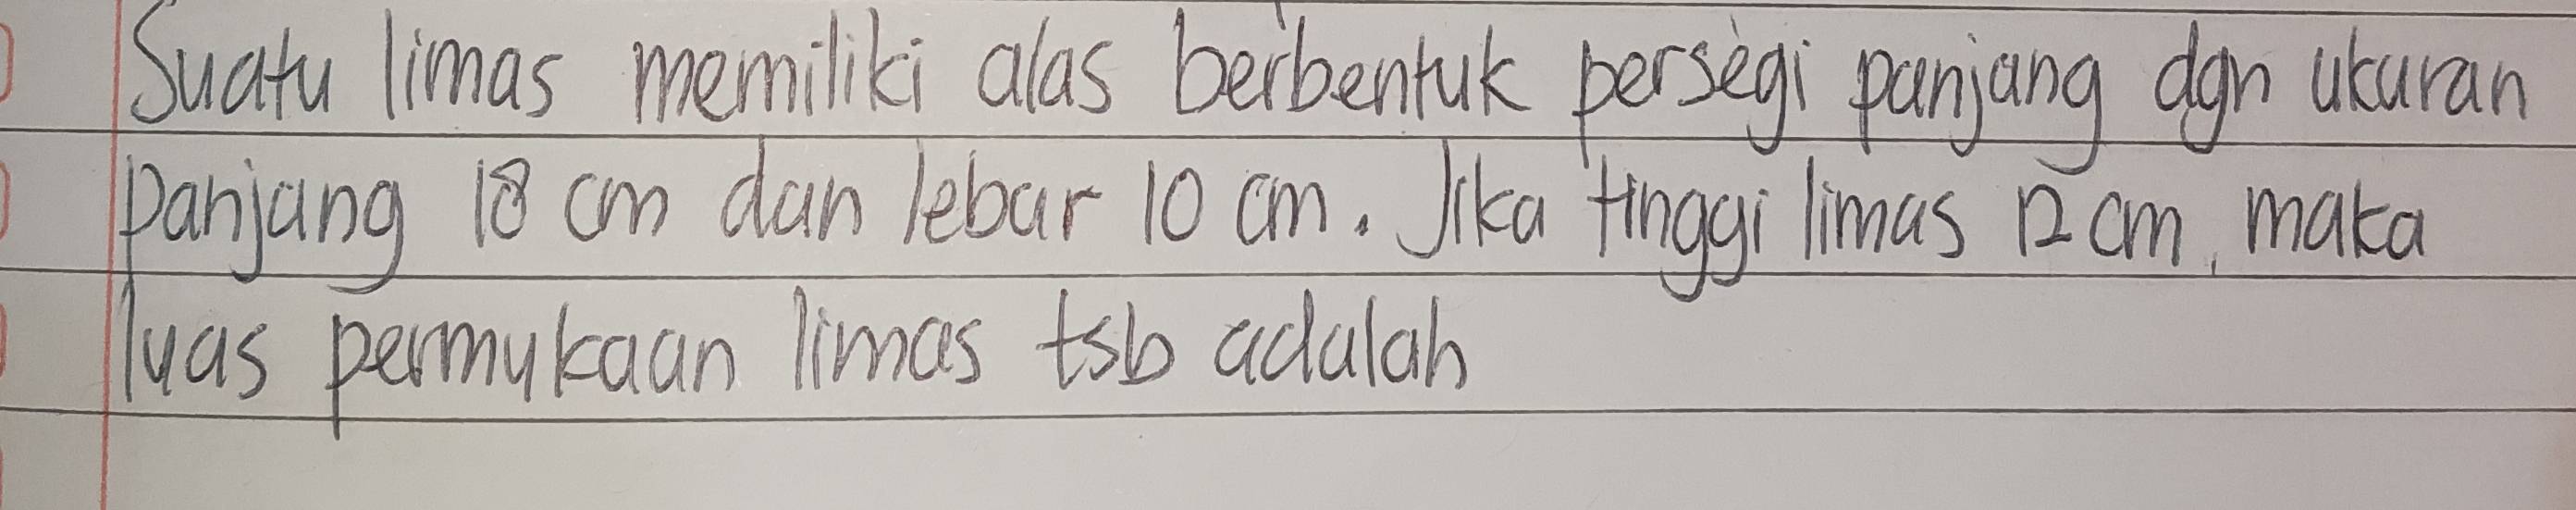 Suatu limas memiliki alas berbentuk persegi panjang dgn ukuran
panjang 18 cm dan lebar 10 cm. Jika tinggi limas 12 cm, maka
luas permukaan limas tsb adalah